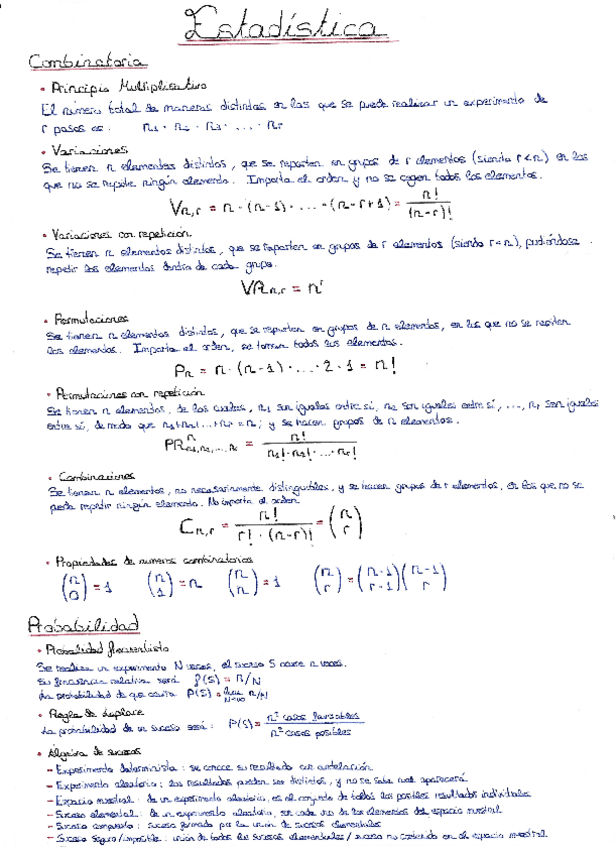 Estadística
Combinatoria
• Principio Multiplicativo
El número total de maneras distintas en las que se puede realizar un experimento de
r pasos es: n₁ · n₂ · n₃ · ... · nᵣ
• Variaciones
Se tienen n elementos distintos, que se reparten en grupos de r elementos (siendo r<n) en los
que no se repite ningún elemento. Importa el orden y no se cogen todos los elementos.
Vn,r = n · (n-1) · ... · (n-r+1) = n! / (n-r)!
• Variaciones con repetición
Se tienen n elementos distintos, que se reparten en grupos de r elementos (siendo r<n), pudiéndose
repetir los elementos dentro de cada grupo.
VRn,r = nʳ
• Permutaciones
Se tienen n elementos distintos, que se reparten en grupos de n elementos, en los que no se repiten
los elementos. Importa el orden, se toman todos los elementos.
Pn = n · (n-1) · ... · 2 · 1 = n!
• Permutaciones con repetición
Se tienen n elementos, de los cuales, n₁ son iguales entre sí, n₂ son iguales entre sí, ..., nᵣ son iguales
entre sí, de modo que n₁+n₂+...+nᵣ = n; y se hacen grupos de n elementos.
PRⁿn₁,n₂,...nᵣ = n! / n₁!·n₂!·...·nᵣ!
• Combinaciones
Se tienen n elementos, no necesariamente distinguibles, y se hacen grupos de r elementos, en los que no se
pueda repetir ningún elemento. No importa el orden
Cn,r = n! / r! · (n-r)! = (n r)
• Propiedades de numeros combinatorios
(n 0) = 1 (n 1) = n (n n) = 1 (n r) = (n-1 r-1)(n-1 r)
Probabilidad
• Probabilidad frecuentista
Se realiza un experimento N veces, el suceso S ocurre n veces.
Su frecuencia relativa será f(S) = n/N
La probabilidad de que ocurra P(S) = lim N→∞ n/N
• Regla de Laplace
La probabilidad de un suceso será: P(S) = nº casos favorables / nº casos posibles
• Álgebra de sucesos
- Experimento determinista: se conoce su resultado con antelación
- Experimento aleatorio: los resultados pueden ser distintos, y no se sabe cual aparecerá
- Espacio muestral: de un experimento aleatorio, es el conjunto de todos los posibles resultados individuales
- Suceso elemental: de un experimento aleatorio, son cada uno de los elementos del espacio muestral
- Suceso compuesto: suceso formado por la unión de sucesos elementales
- Suceso seguro/imposible: unión de todos los sucesos elementales / suceso no contenido en el espacio muestral